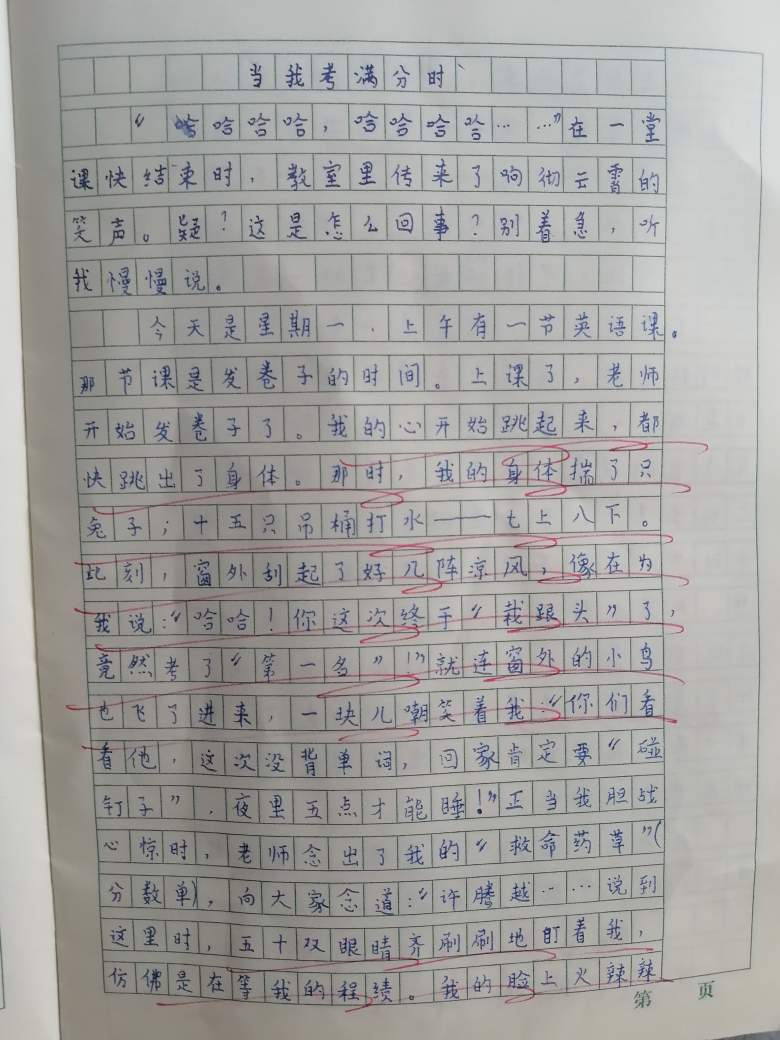 当我考满分时
“哈哈哈哈，哈哈哈哈……”在一堂
课快结束时，教室里传来了响彻云霄的
笑声。疑？这是怎么回事？别着急，听
我慢慢说。
今天是星期一，上午有一节英语课。
那节课是发卷子的时间。上课了，老师
开始发卷子了。我的心开始跳起来，都
快跳出了身体。那时，我的身体揣了只
兔子；十五只吊桶打水——七上八下。
此刻，窗外刮起了好几阵凉风，像在为
我说：“哈哈！你这次终于“栽跟头”了，
竟然考了“第一名”！”就连窗外的小鸟
也飞了进来，一块儿嘲笑着我：“你们看
看他，这次没背单词，回家肯定要“碰
钉子”，夜里五点才能睡！”正当我胆战
心惊时，老师念出了我的“救命药草”（
分数单），向大家念道：“许腾越……说到
这里时，五十双眼睛齐刷刷地盯着我，
仿佛是在等我的程绩。我的脸上火辣辣
第 页